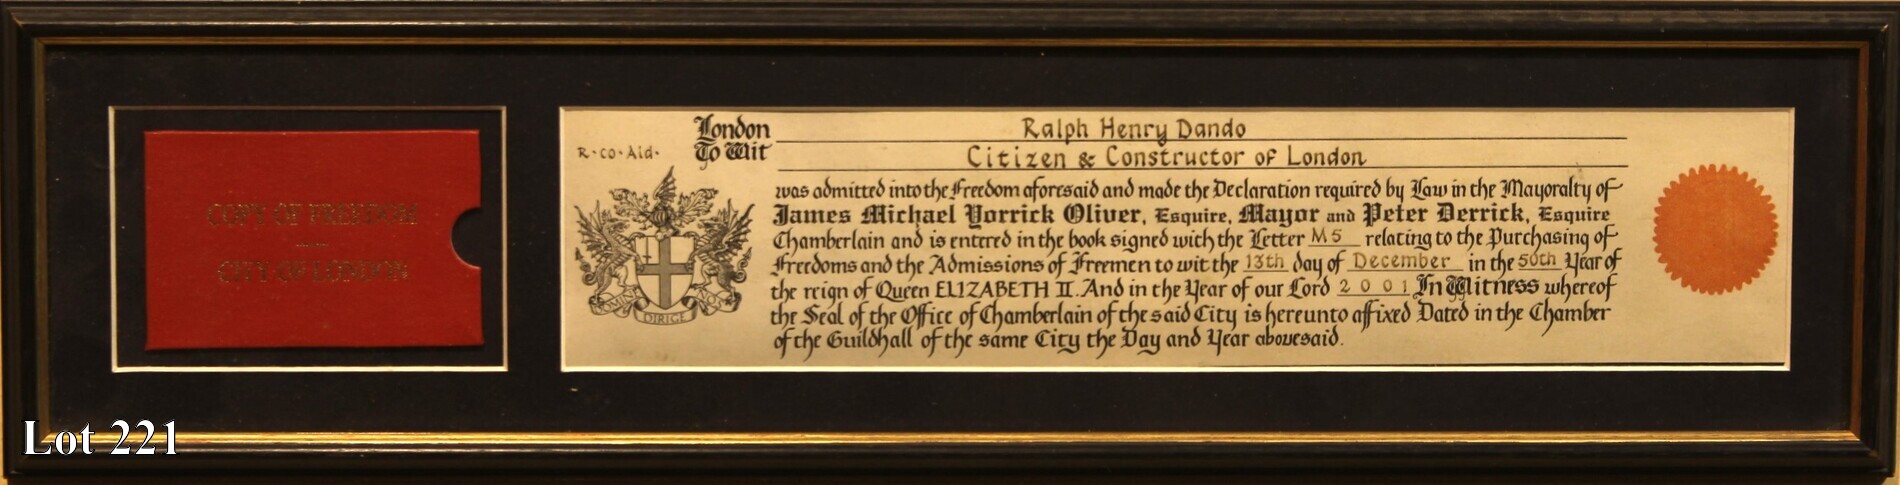 COPY OF FREEDOM
CITY OF LONDON
London
To Wit
R·co·Aid·
DIRIGE
Ralph Henry Dando
Citizen & Constructor of London
was admitted into the Freedom aforesaid and made the Declaration required by Law in the Mayoralty of
James Michael Yorrick Oliver, Esquire, Mayor and Peter Derrick, Esquire
Chamberlain and is entered in the book signed with the Letter M5 relating to the Purchasing of
Freedoms and the Admissions of Freemen to wit the 13th day of December in the 50th Year of
the reign of Queen ELIZABETH II. And in the Year of our Lord 2001 In Witness whereof
the Seal of the Office of Chamberlain of the said City is hereunto affixed Dated in the Chamber
of the Guildhall of the same City the Day and Year abovesaid.
Lot 221